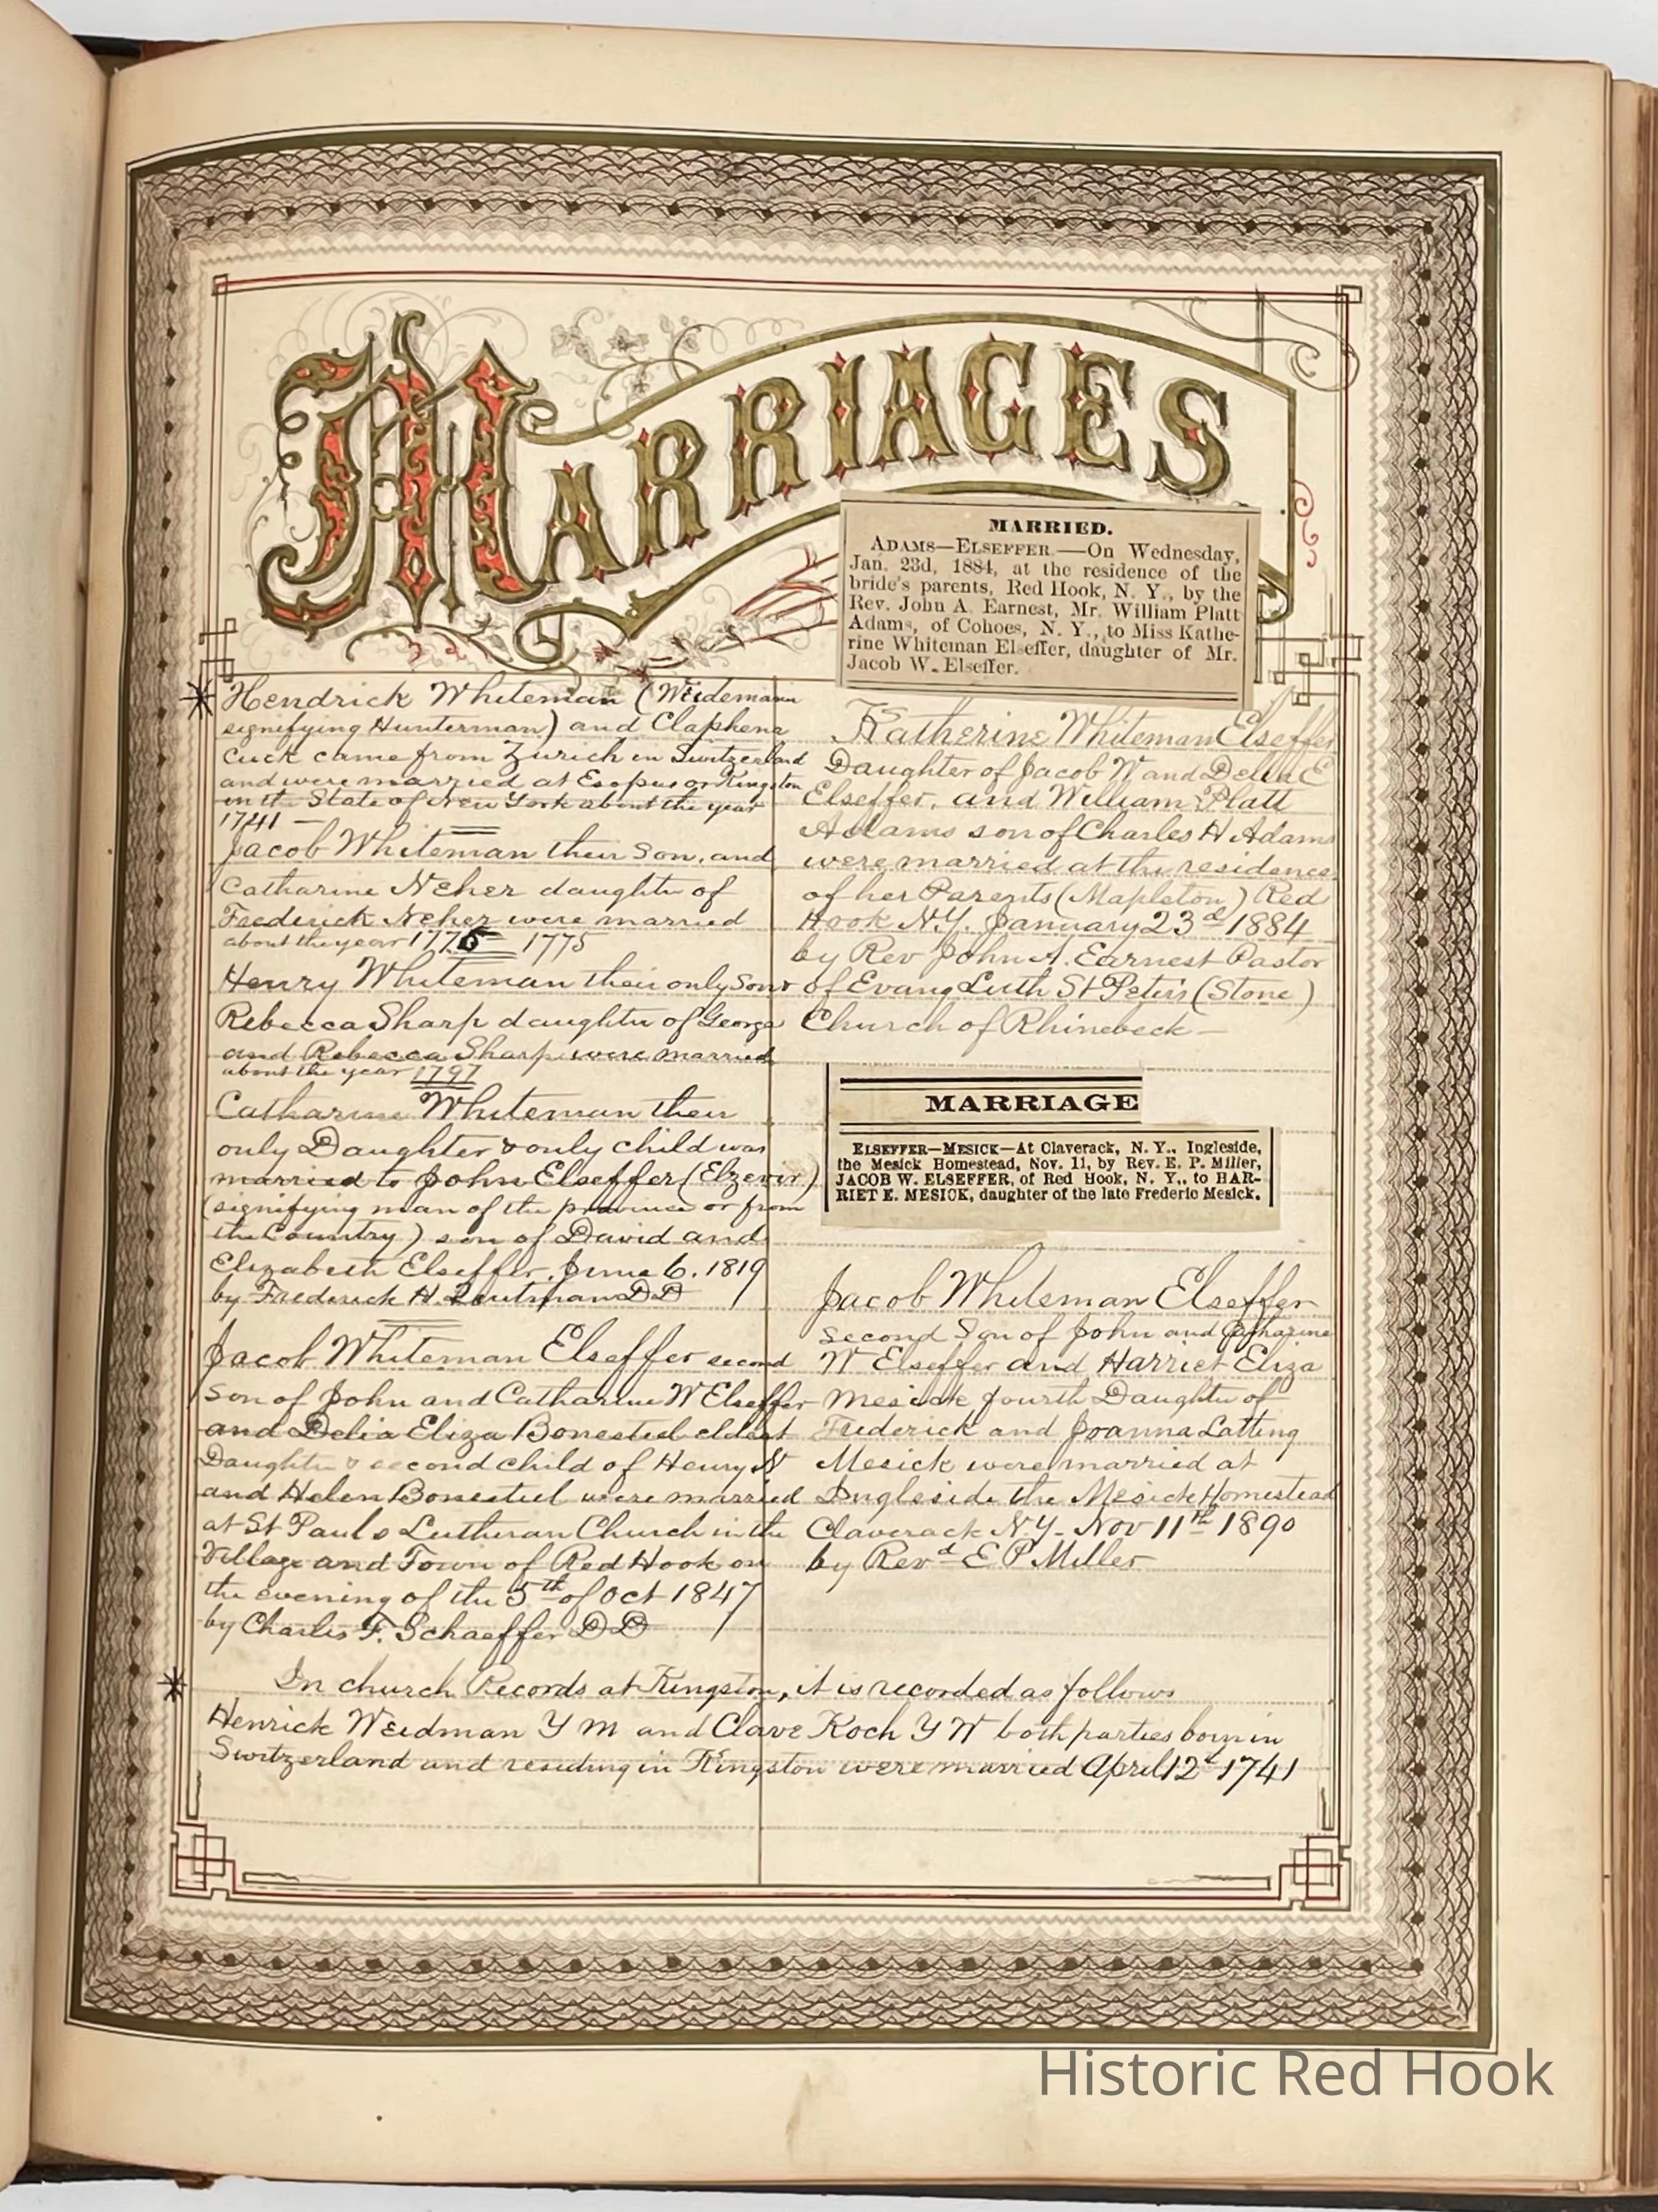 MARRIAGES
MARRIED.
ADAMS—ELSEFFER.—On Wednesday,
Jan. 23d, 1884, at the residence of the
bride's parents, Red Hook, N. Y., by the
Rev. John A. Earnest, Mr. William Platt
Adams, of Cohoes, N. Y., to Miss Kathe-
rine Whiteman Elseffer, daughter of Mr.
Jacob W. Elseffer.
* Hendrick Whiteman (Weidemann
signifying Hunterman) and Claphena
Cuck came from Zurich in Switzerland
and were married at Esopus or Kingston
in the State of New York about the year
1741 —
Jacob Whiteman their Son, and
Catharine Neher daughter of
Frederick Neher were married
about the year 1775 1775
Henry Whiteman their only Son &
Rebecca Sharp daughter of George
and Rebecca Sharp were married
about the year 1797
Catharine Whiteman their
only Daughter & only child was
married to John Elseffer (Elzevir)
(signifying man of the province or from
the Country) son of David and
Elizabeth Elseffer. June 6. 1819
by Frederick H. Quitman DD
Jacob Whiteman Elseffer second
son of John and Catharine W Elseffer
and Delia Eliza Bonesteel eldest
Daughter & second child of Henry N
and Helen Bonesteel were married
at St Pauls Lutheran Church in the
Village and Town of Red Hook on
the evening of the 5th of Oct 1847
by Charles F. Schaeffer DD
Katherine Whiteman Elseffer
Daughter of Jacob W and Delia E
Elseffer. and William Platt
Adams son of Charles H Adams
were married at the residence
of her Parents (Mapleton) Red
Hook N.Y. January 23d 1884
by Rev John A. Earnest Pastor
of Evang Luth St Peter's (Stone)
Church of Rhinebeck —
MARRIAGE
ELSEFFER—MESICK—At Claverack, N. Y., Ingleside,
the Mesick Homestead, Nov. 11, by Rev. E. P. Miller,
JACOB W. ELSEFFER, of Red Hook, N. Y., to HAR-
RIET E. MESICK, daughter of the late Frederic Mesick.
Jacob Whiteman Elseffer
second Son of John and Catharine
W Elseffer and Harriet Eliza
Mesick fourth Daughter of
Frederick and Joanna Latting
Mesick were married at
Ingleside the Mesick Homestead
Claverack N.Y. Nov 11th 1890
by Revd E P Miller
* In church Records at Kingston, it is recorded as follows
Henrick Weidman Y M and Clave Koch Y W both parties born in
Switzerland and residing in Kingston were married April 12d 1741
Historic Red Hook